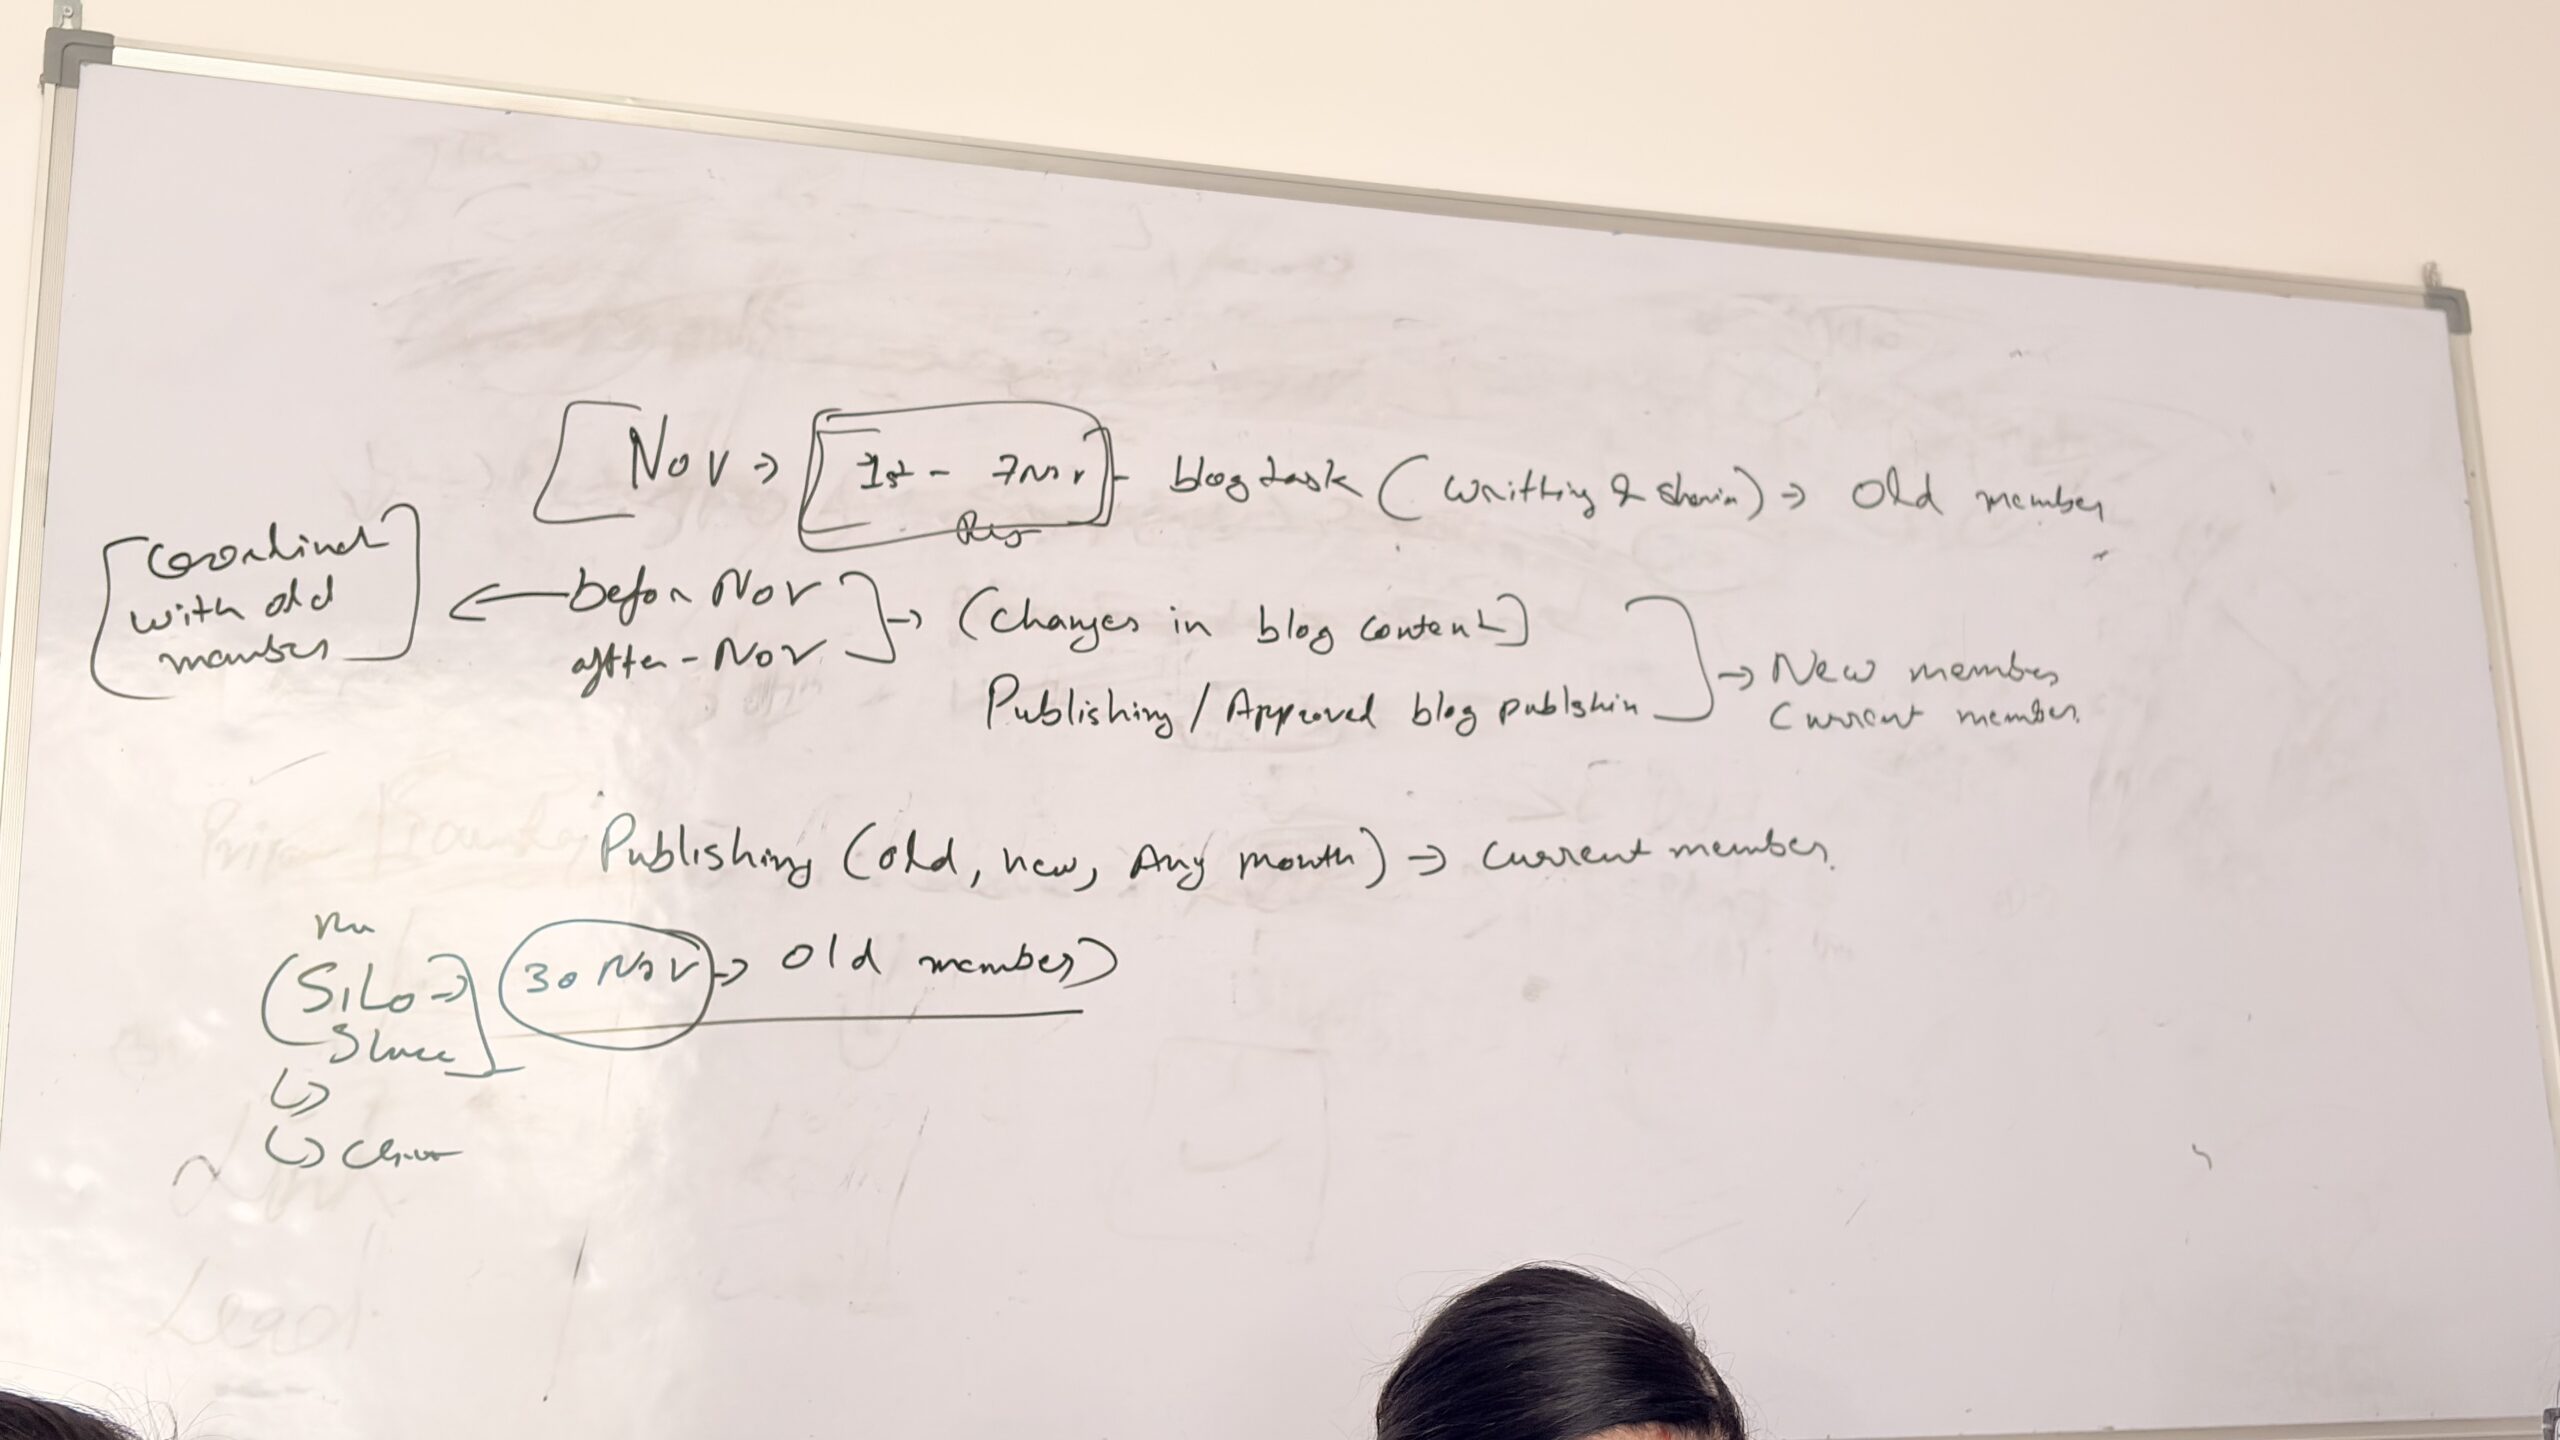 Nov → [1st - 7Nov] - blog task ( writting & sharin) → Old member
before Nov
after - Nov
→ (changes in blog content]
Publishing / Approved blog publshin
→ New member
Current member.
← [Coordinat
with old
member]
Publishing (old, new, Any month) → Current member.
(SILo →
30 Nov → Old member)